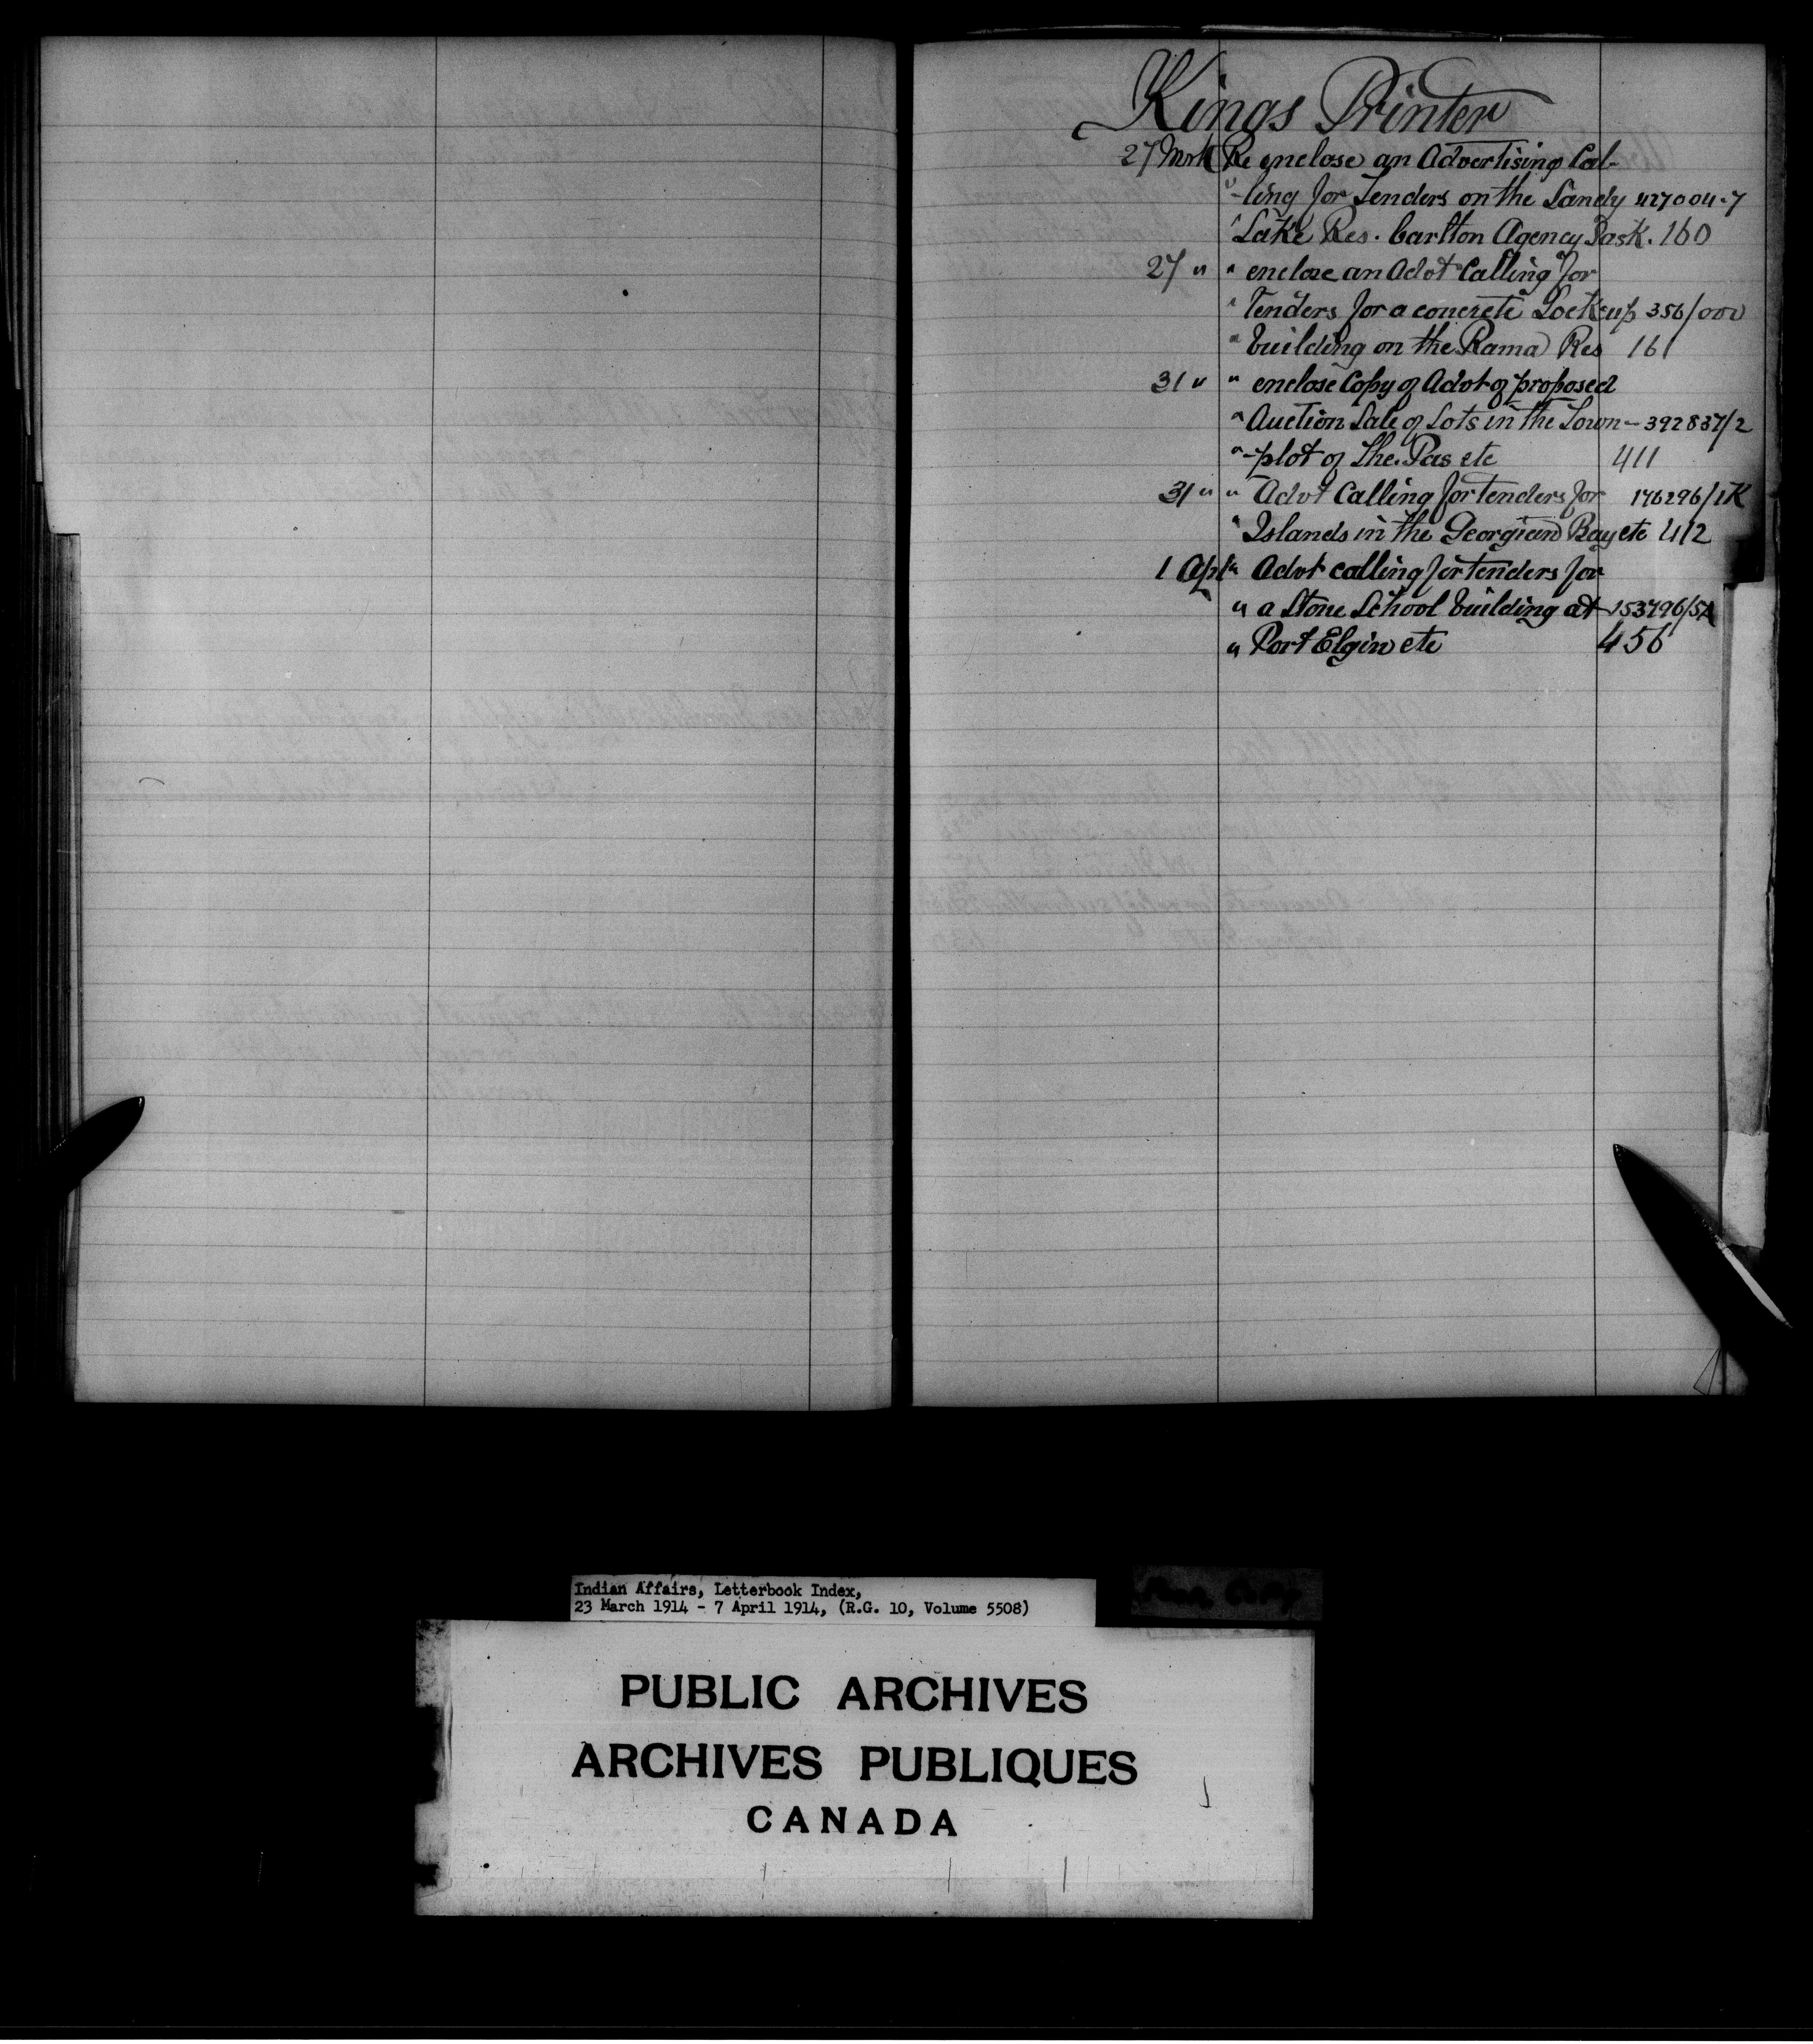 Kings Printer
27 Mrh Re enclose an Advertising Cal-
" -ling for Tenders on the Sandy 427004-7
" Lake Res. Carlton Agency Sask. 160
27 " " enclose an Advt Calling for
" Tenders for a concrete Lockup 356/000
" building on the Rama Res 161
31 " " enclose Copy of Advt of proposed
" Auction Sale of Lots in the Town- 392837/2
" -plot of The Pas etc 411
31 " " Advt Calling for tenders for 176296/1K
" Islands in the Georgian Bay etc 412
1 Apl " Advt calling for tenders for
" a Stone School building at 153796/5A
" Port Elgin etc 456
Indian Affairs, Letterbook Index,
23 March 1914 - 7 April 1914, (R.G. 10, Volume 5508)
PUBLIC ARCHIVES
ARCHIVES PUBLIQUES
CANADA